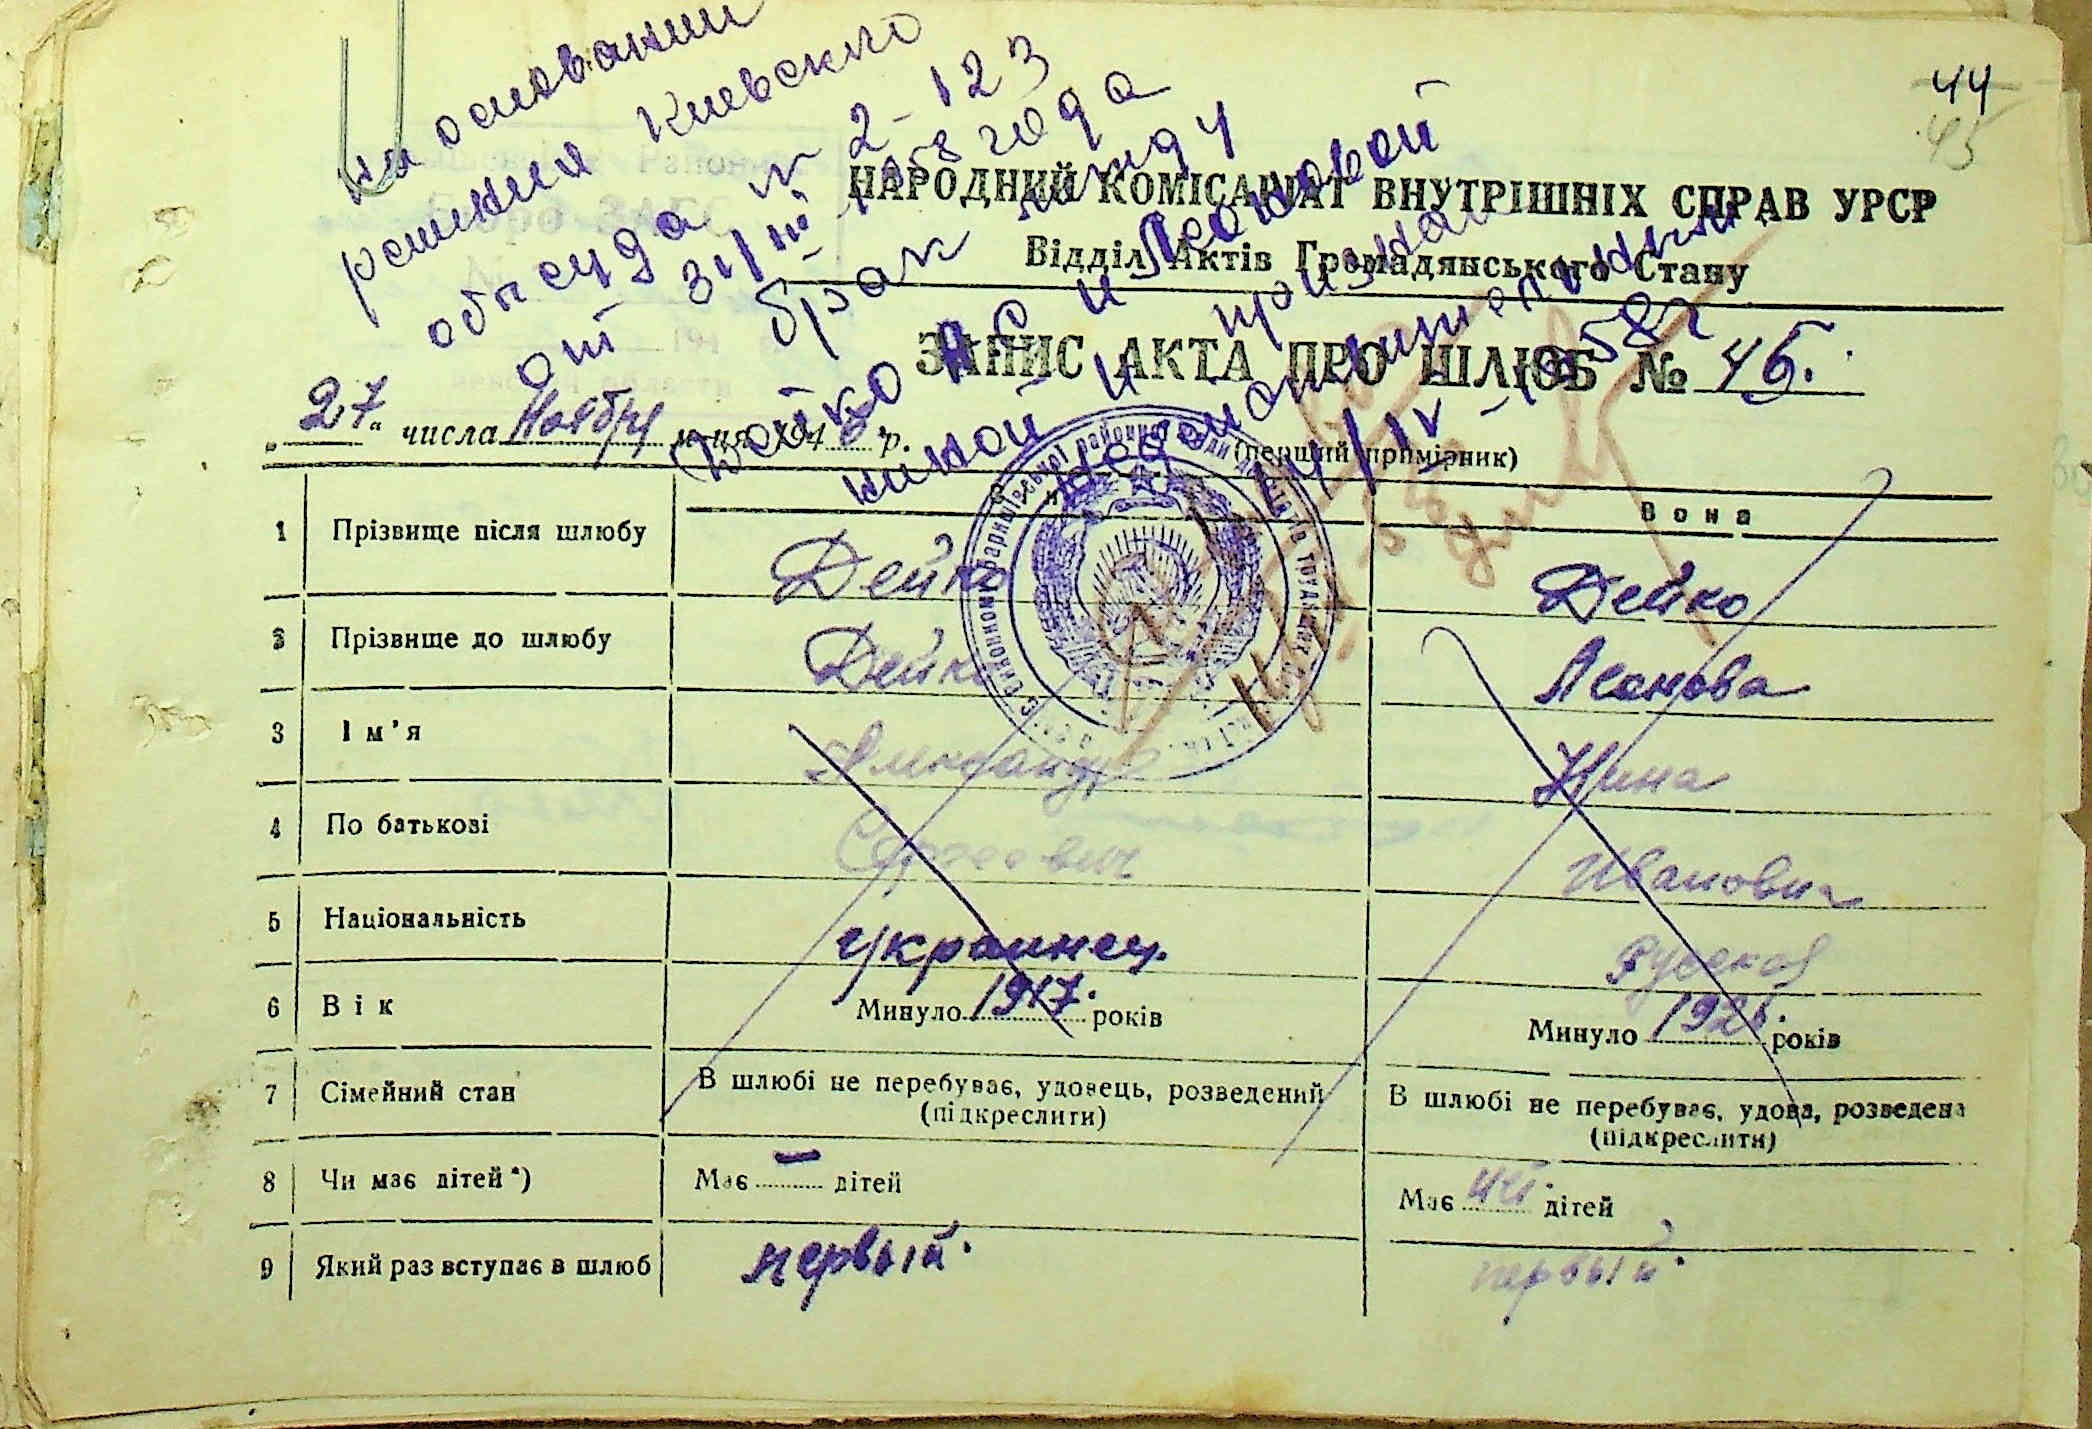 на основании
решения Киевского
облсуда № 2-123
от 31/III-1958 года
брак между
Дейко А С и Леоновой
ниной и признан
недействительным
14/IV-1958 г
44
45
НАРОДНИЙ КОМІСАРІАТ ВНУТРІШНІХ СПРАВ УРСР
Відділ Актів Громадянського Стану
ЗАПИС АКТА ПРО ШЛЮБ № 45.
„27“ числа Ноября м-ця 194 р.
(перший примірник)
Вона
1 Прізвище після шлюбу Дейко Дейко
2 Прізвище до шлюбу Дейко Леонова
3 Ім'я Александр Нина
4 По батькові Сергеевич Ивановна
5 Національність украинец. Русская
6 Вік Минуло 1917. років Минуло 192 років
7 Сімейний стан В шлюбі не перебуває, удовець, розведений (підкреслити) В шлюбі не перебуває, удова, розведена (підкреслити)
8 Чи має дітей*) Має — дітей Має нет. дітей
9 Який раз вступає в шлюб первый. первый.